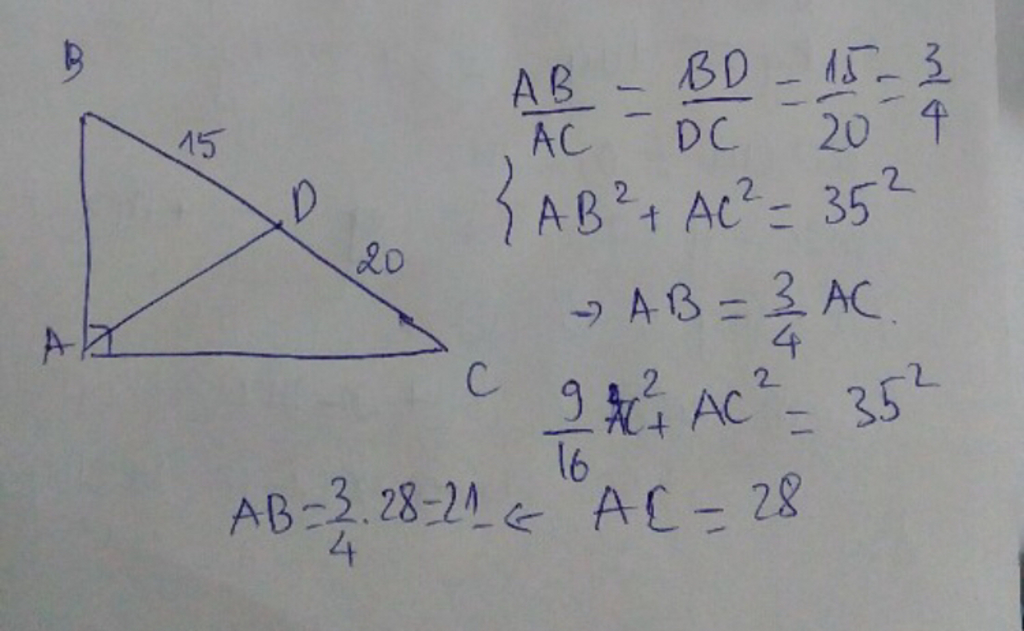 B
15
D
20
A
C
AB/AC = BD/DC = 15/20 = 3/4
{ AB² + AC² = 35²
→ AB = 3/4 AC.
9/16 AC² + AC² = 35²
AB = 3/4 . 28 = 21 ← AC = 28